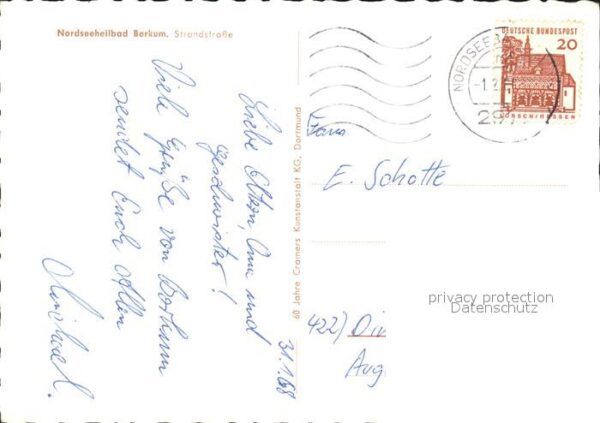 Nordseeheilbad Borkum, Strandstraße
31.1.68
Liebe Eltern, Oma und
Geschwister!
Viele Grüße von Borkum
sendet Euch Allen
Michael.
60 Jahre Cramers Kunstanstalt KG, Dortmund
NORDSEEB
-1.2
DEUTSCHE BUNDESPOST
20
LORSCH/HESSEN
Fam.
E. Schotte
privacy protection
Datenschutz
422) Din
Aug